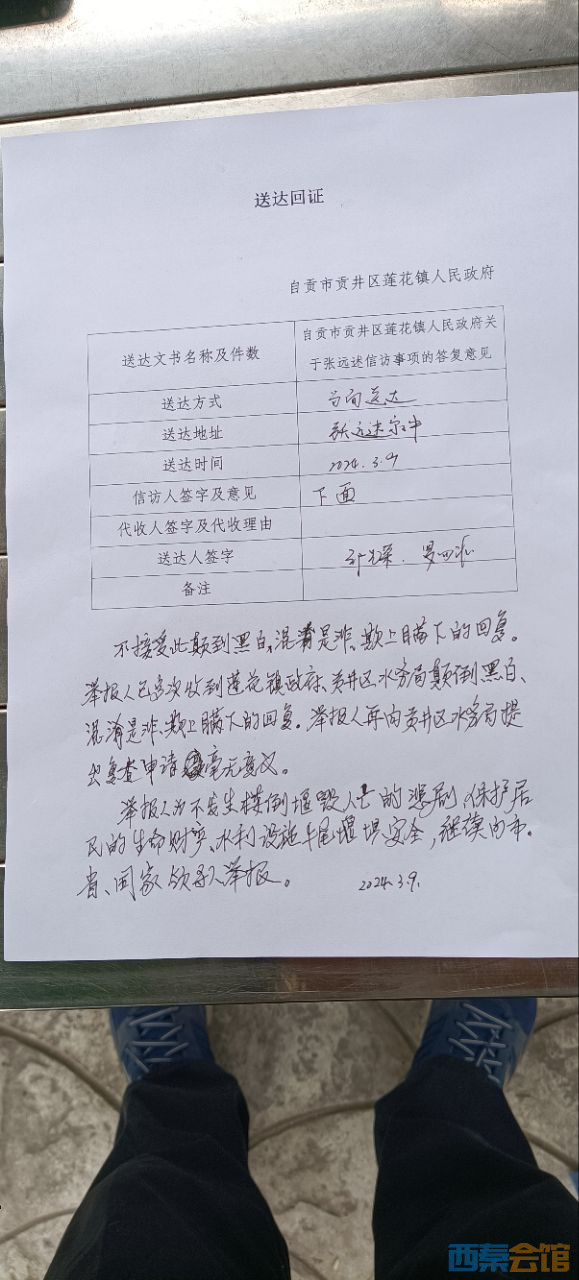 送达回证
自贡市贡井区莲花镇人民政府
送达文书名称及件数 自贡市贡井区莲花镇人民政府关
于张远述信访事项的答复意见
送达方式 当面送达
送达地址 张远述家中
送达时间 2024.3.9
信访人签字及意见 下面
代收人签字及代收理由
送达人签字
备注
不接受此颠到黑白,混淆是非、欺上瞒下的回复。
举报人已多次收到莲花镇政府、贡井区水务局颠倒黑白、
混淆是非、欺上瞒下的回复。举报人再向贡井区水务局提
出复查申请毫无意义。
举报人为不发生楼倒堰毁人亡的悲剧、保护居
民的生命财产、水利设施牛尾堰堤安全,继续向市、
省、国家领导人举报。 2024.3.9.
西秦会馆